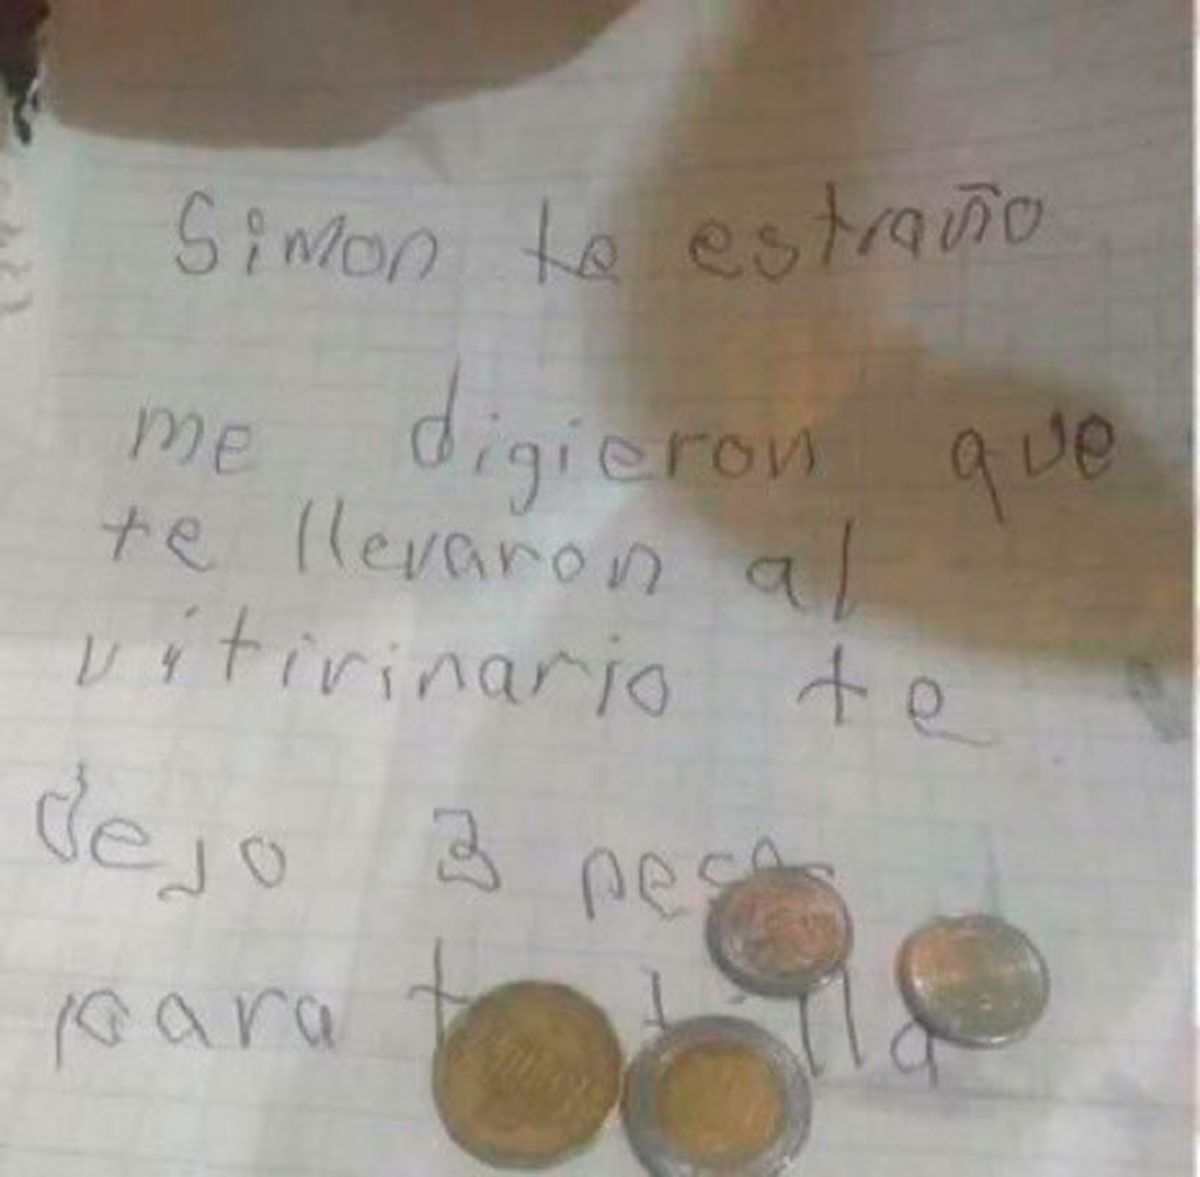 Simon te estraño
me digieron que
te llevaron al
vitirinario te
dejo 3 pesos
para